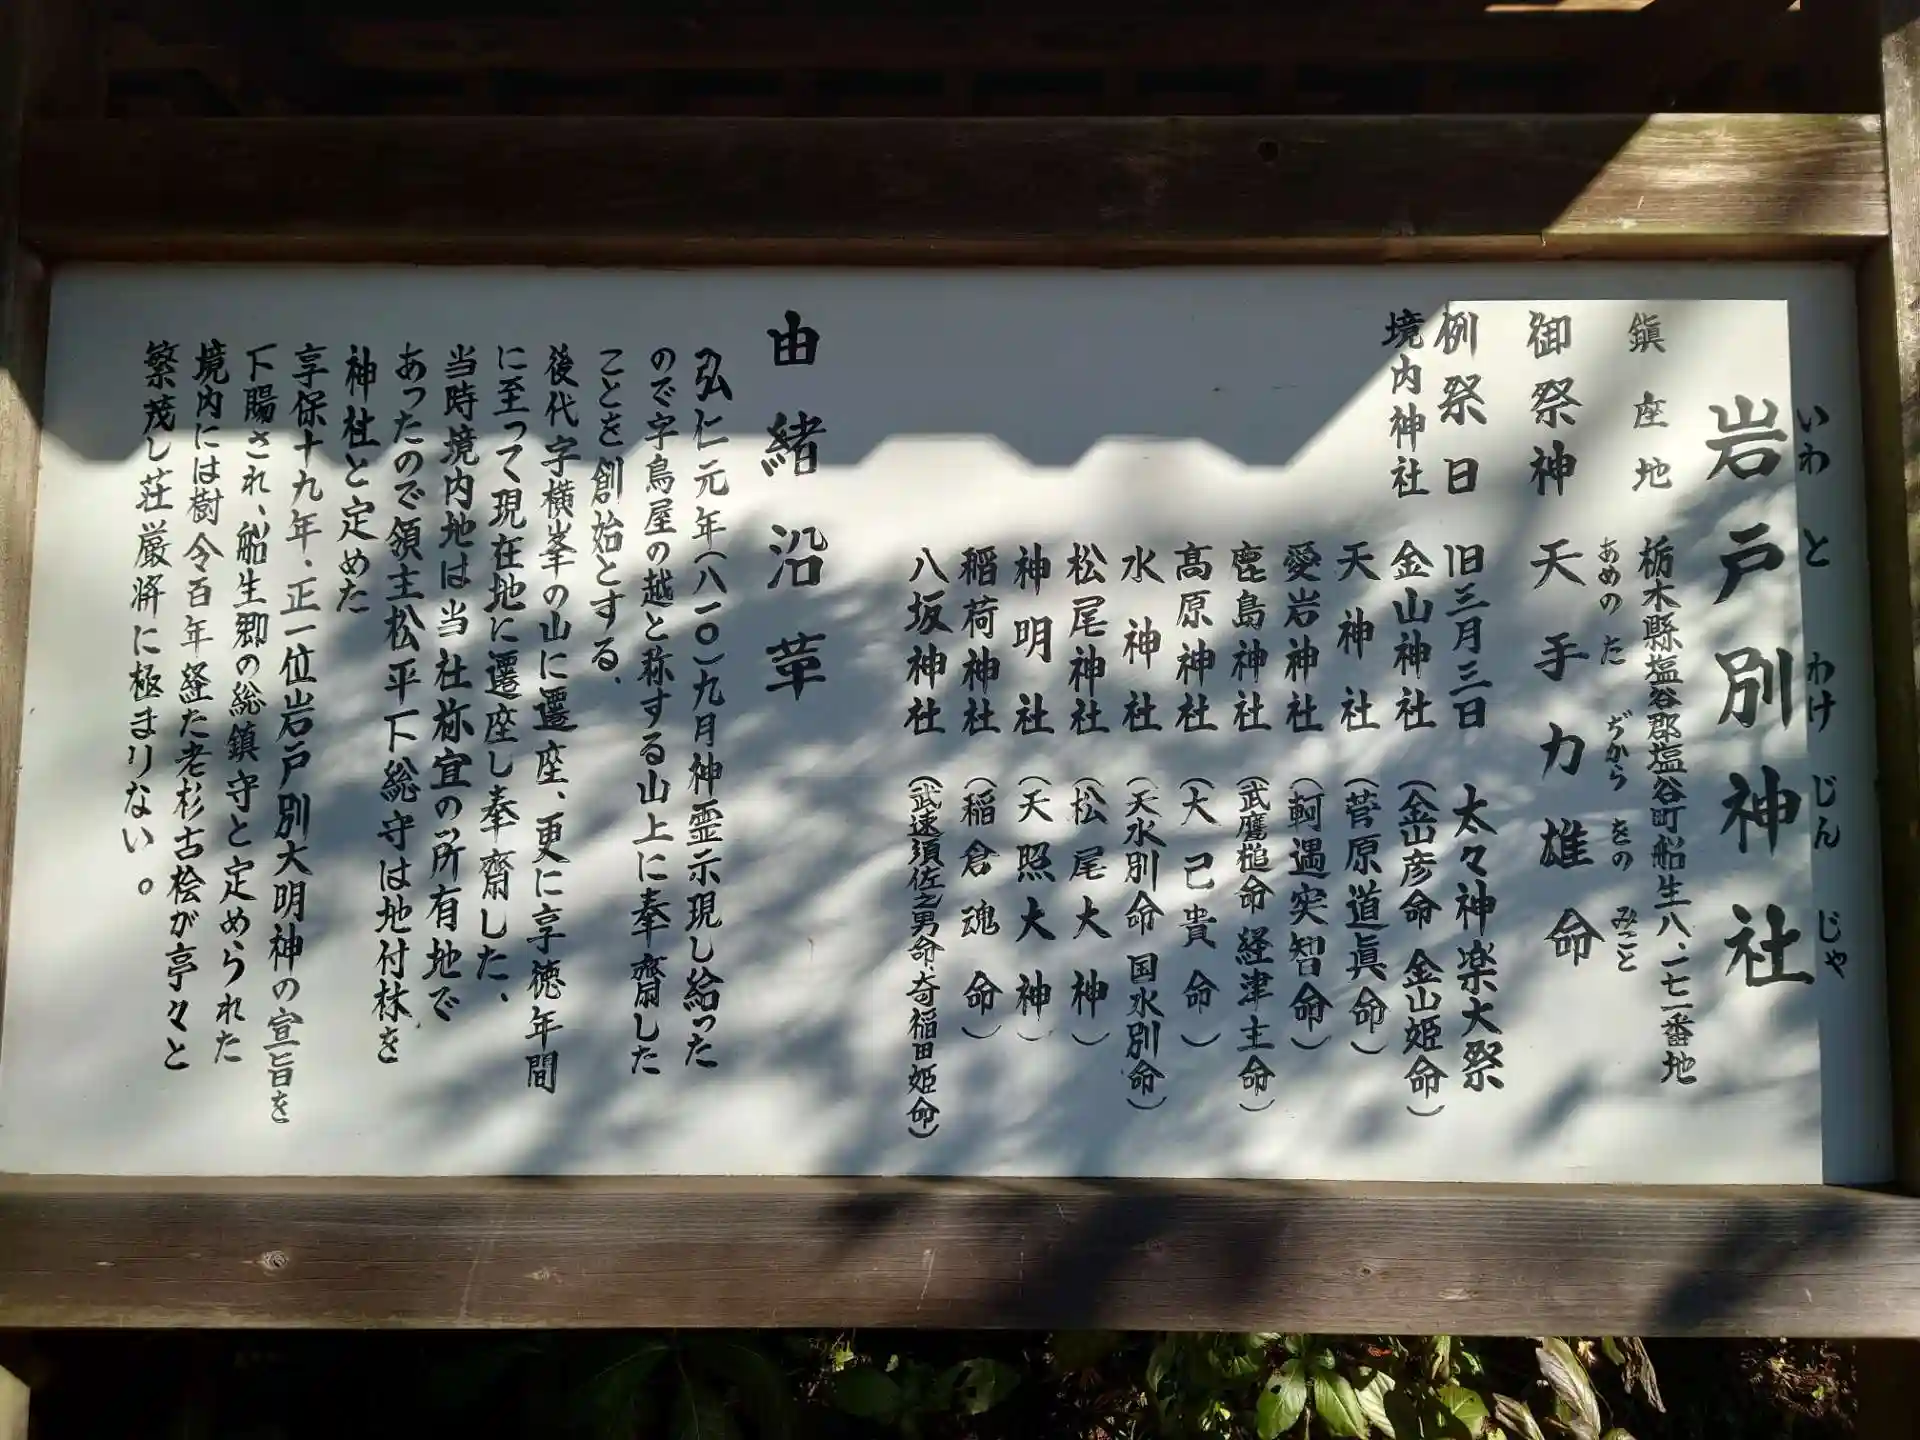 いわとわけじんじゃ
岩戸別神社
鎭座地 栃木縣塩谷郡塩谷町船生八、一七一番地
あめのたぢからをのみこと
御祭神 天手力雄命
例祭日 旧三月三日 太々神楽大祭
境内神社 金山神社(金山彦命 金山姫命)
天神社(菅原道眞命)
愛岩神社(軻遇突智命)
鹿島神社(武鷹槌命 経津主命)
高原神社(大己貴命)
水神社(天水別命 国水別命)
松尾神社(松尾大神)
神明社(天照大神)
稲荷神社(稲倉魂命)
八坂神社(武速須佐之男命、奇稲田姫命)
由緒沿革
弘仁元年(八一〇)九月神霊示現し給った
ので字鳥屋の越と称する山上に奉齋した
ことを創始とする、
後代字横峯の山に遷座、更に享徳年間
に至って現在地に遷座し奉齋した、
当時境内地は当社祢宜の所有地で
あったので領主松平下総守は地付林を
神社と定めた
享保十九年、正一位岩戸別大明神の宣旨を
下賜され、船生郷の総鎮守と定められた
境内には樹令百年経た老杉古桧が亭々と
繁茂し荘厳將に極まりない。